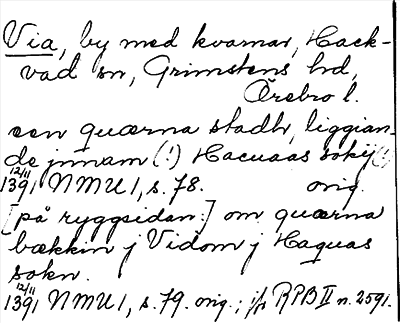 Via, by med kvarnar, Hack-
vad sn, Grimstens hd,
Örebro l.
een quærna stadh, liggian-
de jnnam (!) Hacuaas sokn (!)
12/11 1391 NMU 1, s. 78. orig.
[på ryggsidan:] om quærna
bækkin j Vidom j Haquas
sokn.
12/11 1391 NMU 1, s. 79. orig.; jfr RPB II n. 2591.